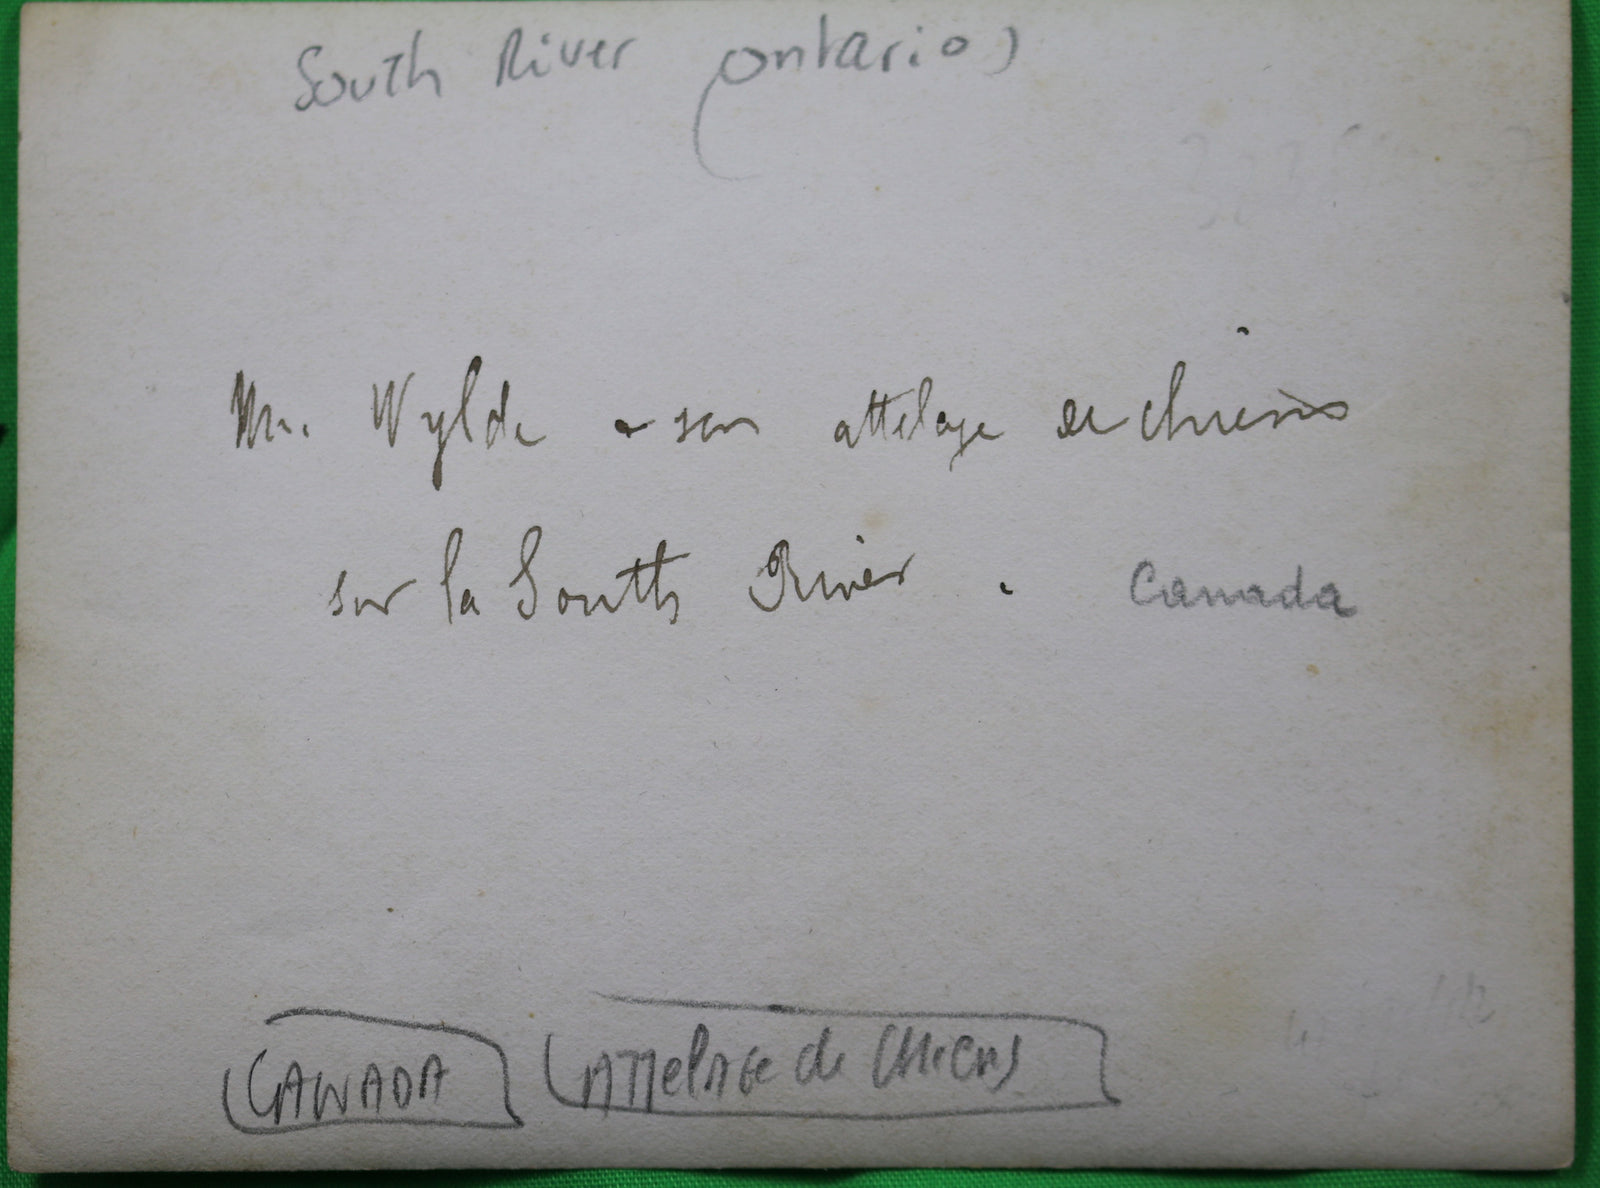 South River (Ontario)
Mr. Wylde & son attelage de chiens
sur la South River. Canada
CANADA ATTelAGe de CHIeNS